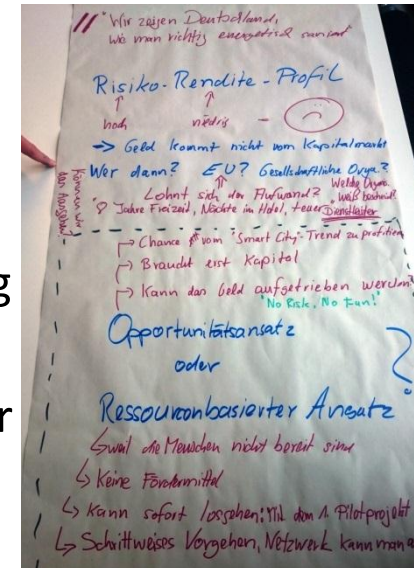 "Wir zeigen Deutschland,
wie man richtig energetisch saniert"
Risiko-Rendite-Profil
hoch niedrig -
→ Geld kommt nicht vom Kapitalmarkt
Wer dann? EU? Gesellschaftliche Orga?
Welche Orga.
weiß bescheid?
Lohnt sich der Aufwand?
"8 Jahre Freizeit, Nächte im Hotel, teuer Dienstleister
Können wir
das
Chance vom "Smart City"-Trend zu profitieren
Braucht erst Kapital
Kann das Geld aufgetrieben werden?
"No Risk, No Fun!"
g
Opportunitätsansatz
oder
?
r
Ressourcenbasierter Ansatz
↳ weil die Menschen nicht bereit sind
↳ Keine Fördermittel
↳ Kann sofort losgehen: mit dem 1. Pilotprojekt
↳ Schrittweises Vorgehen, Netzwerk kann man a